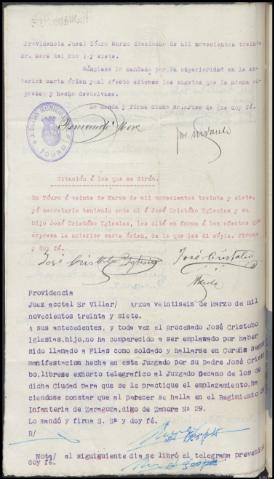 Providencia Juez Touro Marzo dieciocho de mil novecientos treinta
y siete.
Cúmplase lo mandado por la superioridad en la an-
terior carta órden
y hecho devuélvase.
Lo mandó y firma doy fé.
JUZGADO MUNICIPAL
TOURO
Citación á los que se dirán.
En Touro á veinte de Marzo de mil novecientos treinta y siete,
yó secretario teniendo ante mí á José Cristobo Yglesias y su
hijo José Cristobo Yglesias, les cité en forma á los efectos que
expresa la anterior carta órden, de la que leí cópia. Firman
y doy fé.
José Cristobo Yglesias José Cristobo
Providencia
Juez acctal Sr Villar/ Arzua veintiseis de Marzo de mil
novecientos treinta y siete.
A sus antecedentes, y toda vez el procesado José Cristobo
Yglesias, hijo, no ha comparecido a ser emplazado por haber
sido llamado a Filas como soldado y hallarse en
manifestacion hecha en este Juzgado por su padre José Cristo
bo, librese exhorto telegrafico al Juzgado Decano de los de
dicha ciudad para que se le practique el emplazamiento, ha
ciendose constar que al parecer se halla en el Regimiento de
Infanteria de Zaragoza, digo de Zamora Nº 29.
Lo mandó y firma S. Sª y doy fé.
R/
Nota/ al siguiente dia se libró el telegrama prevenido
doy fe.